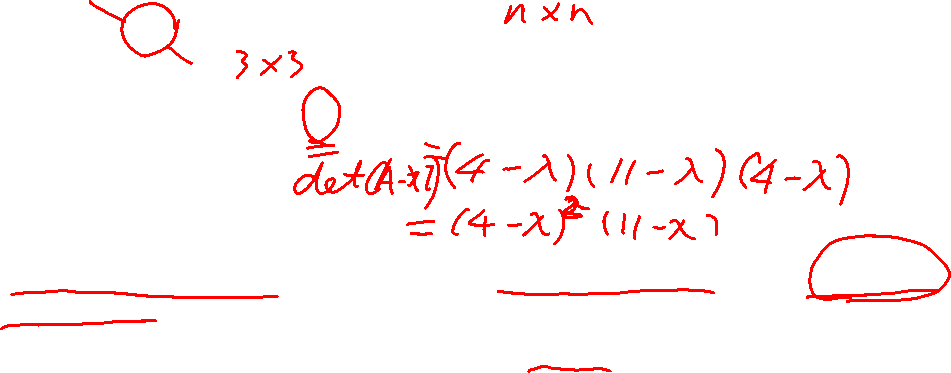 n × n
3 × 3
det(A-λI) = (4-λ)(11-λ)(4-λ)
= (4-λ)² (11-λ)